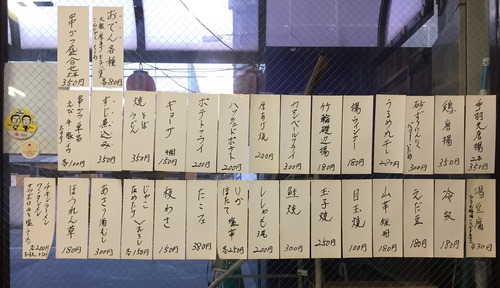 おでん各種
80円
串かつ盛合せ
350円
手羽先唐揚
2本
350円
鶏唐揚
350円
砂ずり
300円
うるめ丸干し
揚ウィンナー
180円
竹輪磯辺揚
180円
カマンベールフライ
300円
厚あげ焼
200円
ハッシュドポテト
200円
ポテトフライ
200円
ギョーザ
150円
焼そば
350円
すじ煮込み
350円
串かつ単品
各100円
湯豆腐
230円
冷奴
180円
えだ豆
180円
山芋短冊
180円
目玉焼
100円
玉子焼
250円
鮭焼
300円
ししゃも
200円
いか
ほたて
塩辛
各250円
たこ
380円
板わさ
150円
じゃこおろし
なめたけおろし
各150円
あさり酒むし
300円
ほうれん草
180円
チキンラーメン
ワンタンメン
サッポロ一番